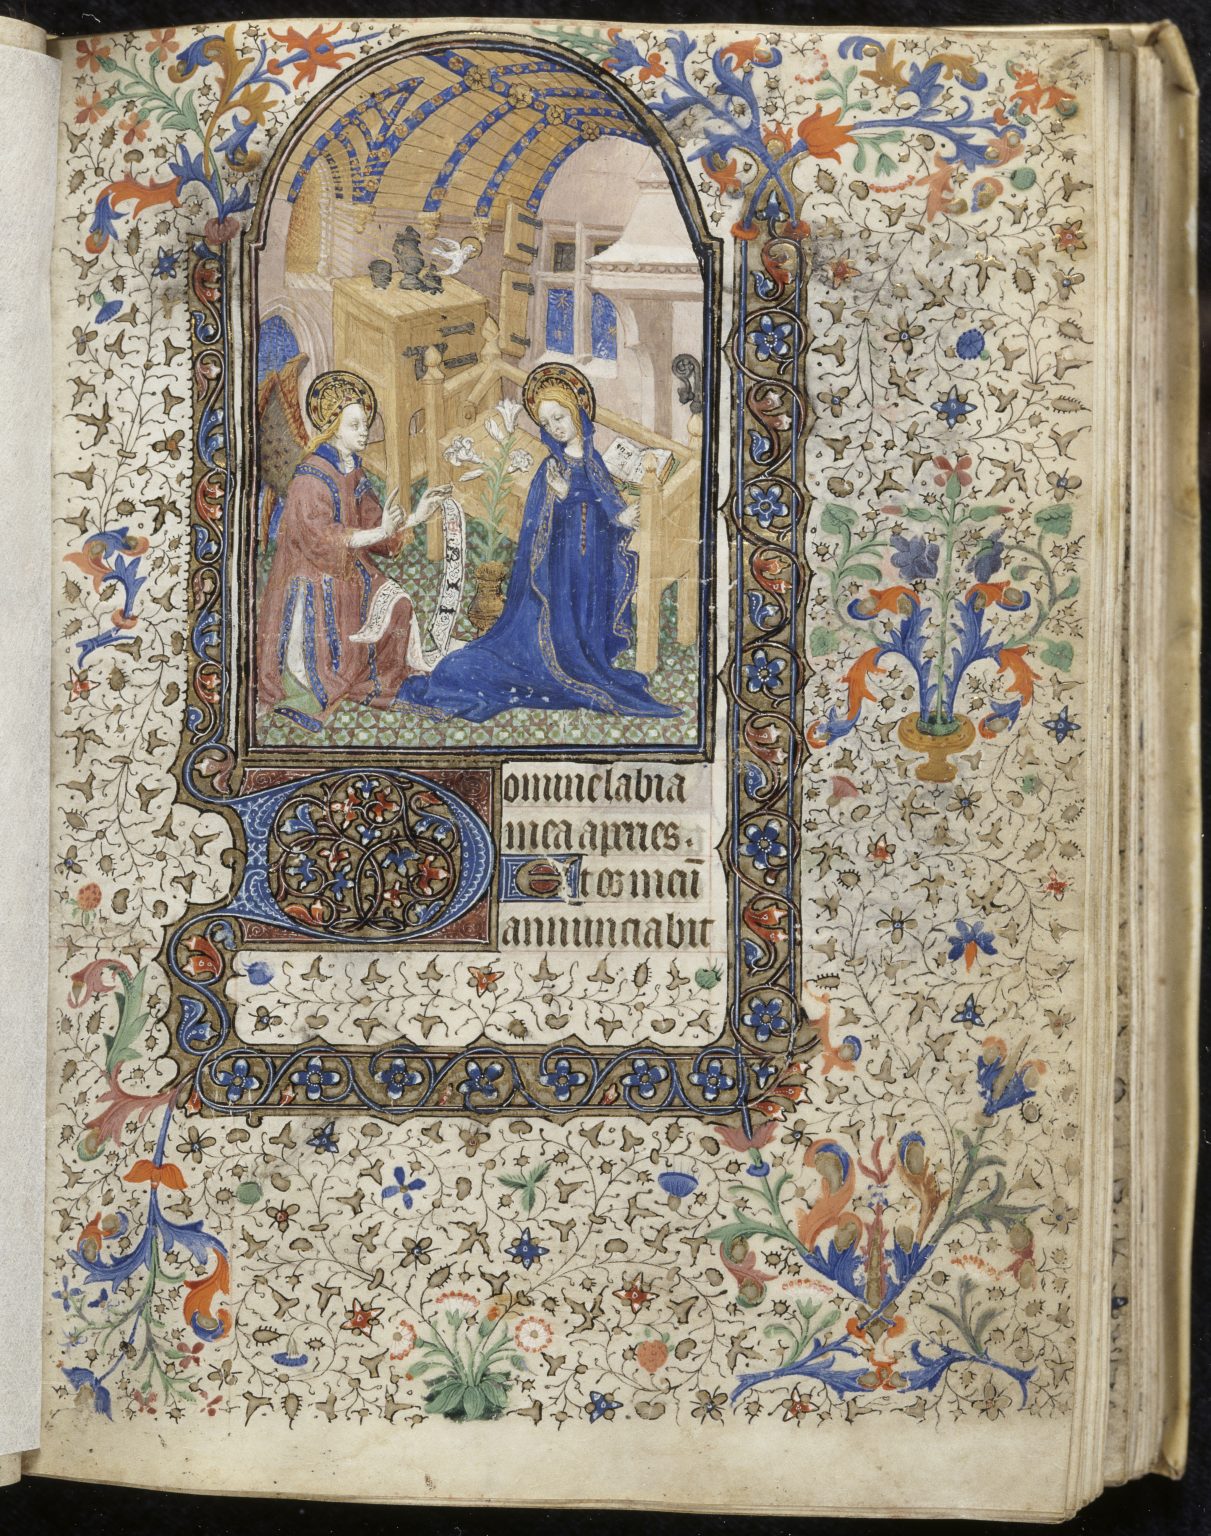 Domine labia
mea apries.
Et os meū
annunciabit